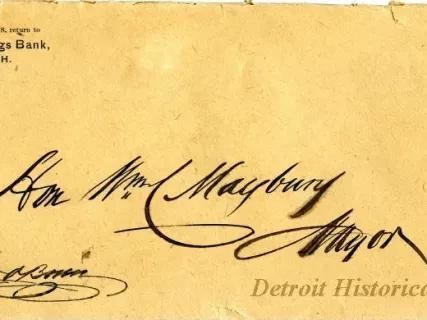 s, return to
gs Bank,
H.
Hon Wm C Maybury
Mayor
Detroit Historica